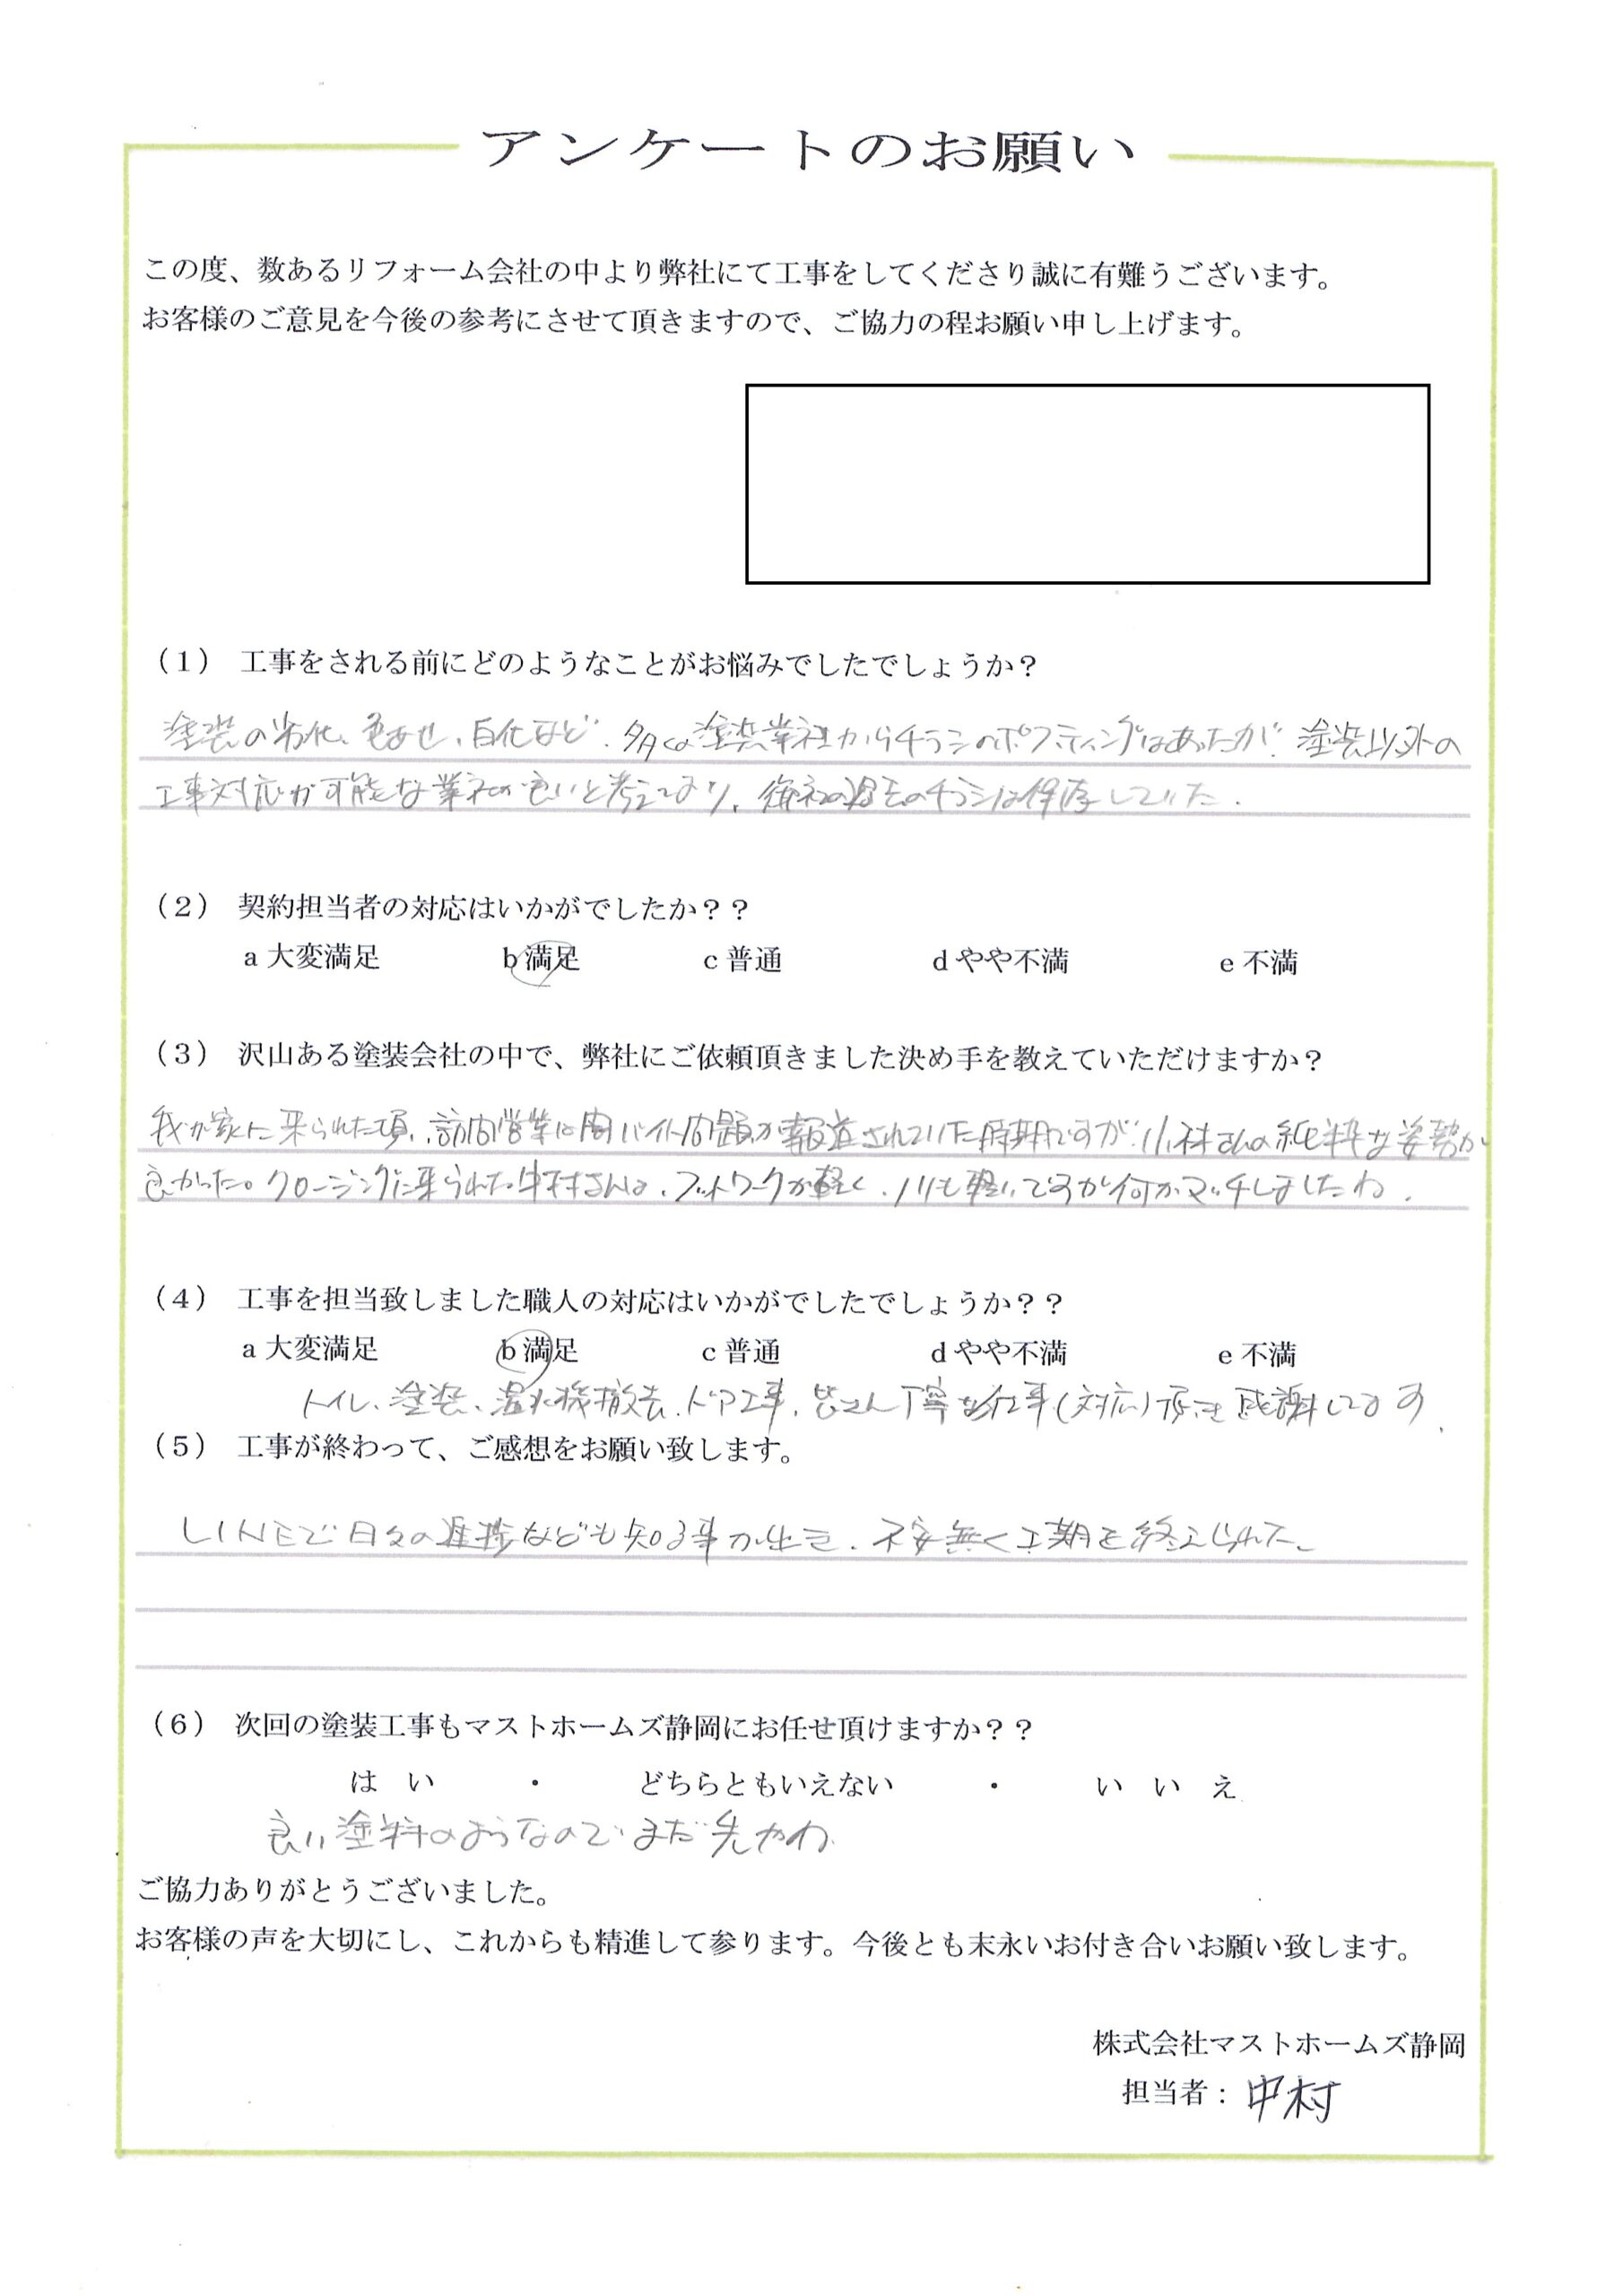 アンケートのお願い
この度、数あるリフォーム会社の中より弊社にて工事をしてくださり誠に有難うございます。
お客様のご意見を今後の参考にさせて頂きますので、ご協力の程お願い申し上げます。
（１） 工事をされる前にどのようなことがお悩みでしたでしょうか？
塗装の劣化、色あせ、白化など、多くの塗装業社からチラシのポスティングはあったが、塗装以外の
工事対応が可能な業社が良いと考えており、御社の過去のチラシは保存していた。
（２） 契約担当者の対応はいかがでしたか？？
a 大変満足 b 満足 c 普通 d やや不満 e 不満
（３） 沢山ある塗装会社の中で、弊社にご依頼頂きました決め手を教えていただけますか？
我が家に来られた頃、訪問営業は闇バイト問題が報道されていた時期ですが、小林さんの純粋な姿勢が
良かった。クロージングに来られた中村さんは、フットワークが軽く、ノリも軽いですが何かマッチしましたわ。
（４） 工事を担当致しました職人の対応はいかがでしたでしょうか？？
a 大変満足 b 満足 c 普通 d やや不満 e 不満
トイレ、塗装、温水機撤去、ドア工事、皆さん丁寧な仕事(対応)頂き感謝してます。
（５） 工事が終わって、ご感想をお願い致します。
LINEで日々の進捗なども知る事が出き、不安無く工期を終えられた。
（６） 次回の塗装工事もマストホームズ静岡にお任せ頂けますか？？
は い ・ どちらともいえない ・ い い え
良い塗料のようなのでまだ先かわ
ご協力ありがとうございました。
お客様の声を大切にし、これからも精進して参ります。今後とも末永いお付き合いお願い致します。
株式会社マストホームズ静岡
担当者：中村